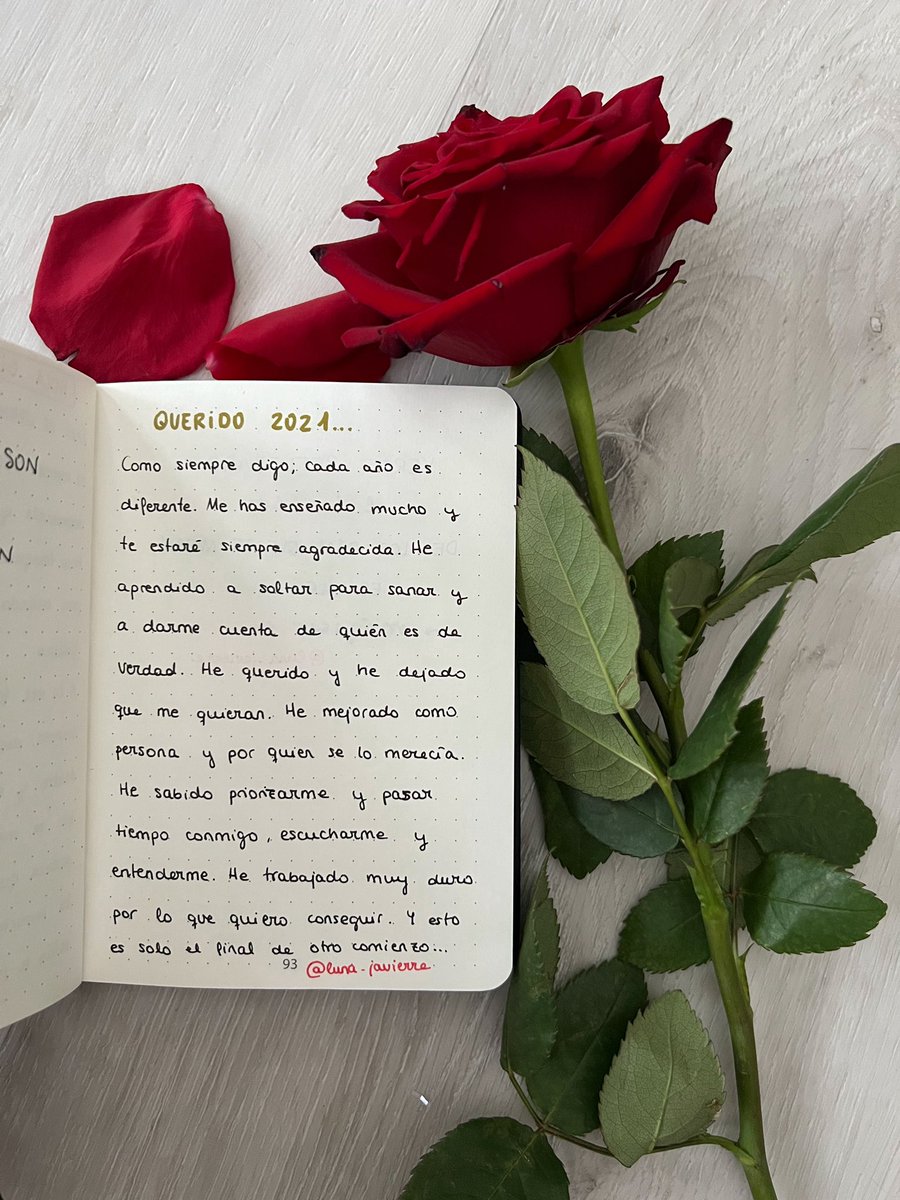 SON
N
QUERIDO 2021...
Como siempre digo; cada año es
diferente. Me has enseñado mucho y
te estaré siempre agradecida. He
aprendido a soltar para sanar y
a darme cuenta de quién es de
verdad. He querido y he dejado
que me quieran. He mejorado como
persona y por quien se lo merecía.
He sabido priorizarme y pasar
tiempo conmigo, escucharme y
entenderme. He trabajado muy duro
por lo que quiero conseguir. Y esto
es solo el final de otro comienzo...
93 @luna_javierre